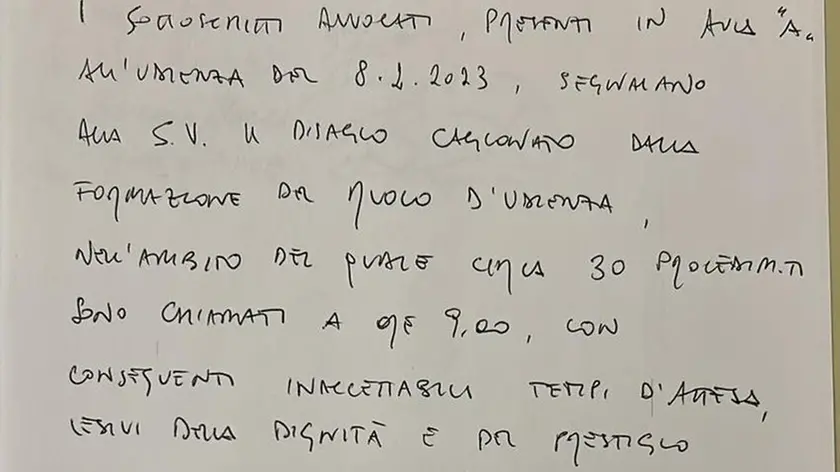 I SOTTOSCRITTI AVVOCATI, PRESENTI IN AULA "A"
ALL'UDIENZA DEL 8.2.2023, SEGNALANO
ALLA S.V. IL DISAGIO CAGIONATO DALLA
FORMAZIONE DEL RUOLO D'UDIENZA,
NELL'AMBITO DEL QUALE CIRCA 30 PROCEDIM.TI
SONO CHIAMATI A ORE 9,00, CON
CONSEGUENTI INACCETTABILI TEMPI D'ATTESA,
LESIVI DELLA DIGNITÀ E DEL PRESTIGIO